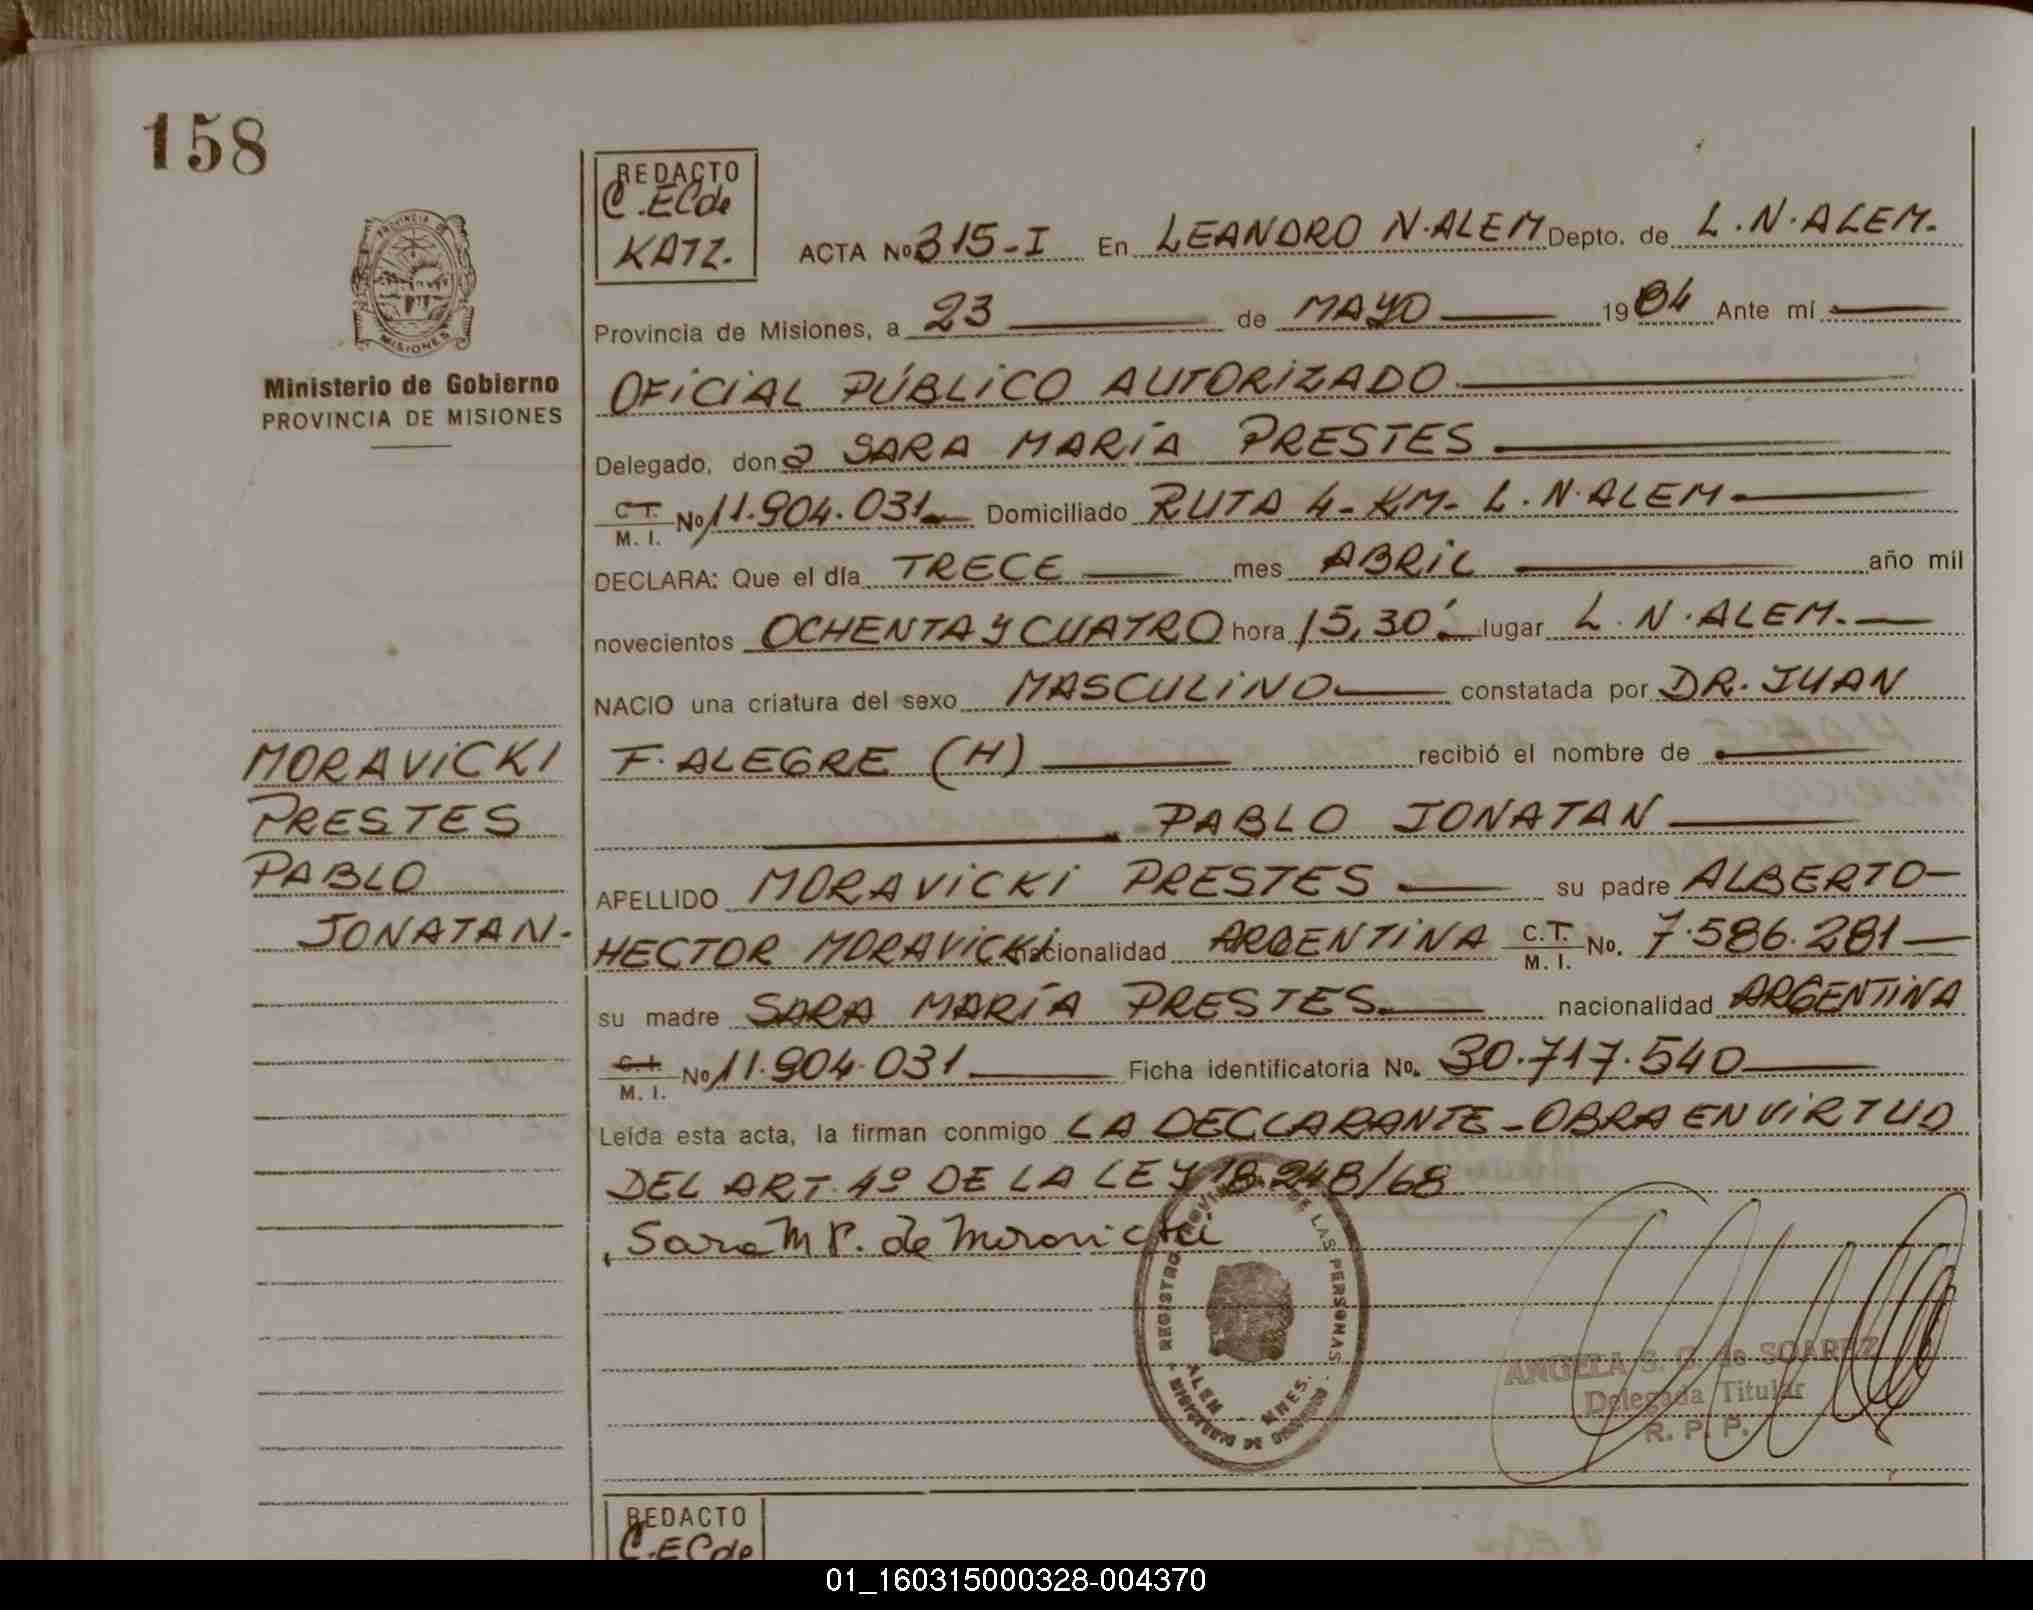 158
REDACTO
C.ECde
KATZ.
ACTA Nº 315-I En LEANDRO N. ALEM Depto. de L.N. ALEM.
Provincia de Misiones, a 23 de MAYO 1984 Ante mí
OFICIAL PÚBLICO AUTORIZADO
Delegado, dona SARA MARÍA PRESTES
C.T. M. I. Nº 11.904.031 Domiciliado RUTA 4-KM- L.N. ALEM
DECLARA: Que el día TRECE mes ABRIL año mil
novecientos OCHENTA Y CUATRO hora 15,30' lugar L.N. ALEM.
NACIO una criatura del sexo MASCULINO constatada por DR. JUAN
F. ALEGRE (H) recibió el nombre de
PABLO JONATAN
APELLIDO MORAVICKI PRESTES su padre ALBERTO
HECTOR MORAVICKI nacionalidad ARGENTINA C.T. M. I. No. 7.586.281
su madre SARA MARÍA PRESTES. nacionalidad ARGENTINA
C.I. M. I. Nº 11.904.031 Ficha identificatoria No. 30.717.540
Leída esta acta, la firman conmigo LA DECLARANTE - OBRA EN VIRTUD
DEL ART. 4º DE LA LEY 18.248/68
Sara M P. de Moravicki
PROVINCIA DE MISIONES
Ministerio de Gobierno
PROVINCIA DE MISIONES
MORAVICKI
PRESTES
PABLO
JONATAN.
REGISTRO PROVINCIAL DE LAS PERSONAS
ALEM MNES.
ANGELA S. G. de SOAREZ
Delegada Titular
R. P. P.
REDACTO
C.ECde
01_160315000328-004370